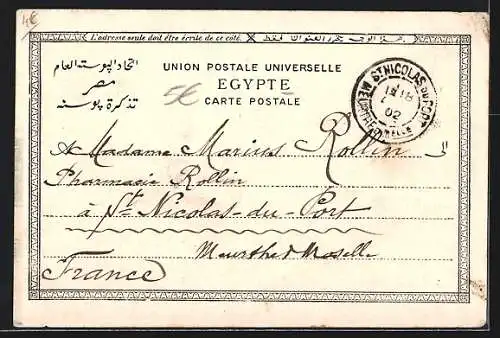 4€
L'adresse seule doit être écrite de ce côté.
اتحاد البوستة العام
مصر
تذكرة بوسته
UNION POSTALE UNIVERSELLE
EGYPTE
CARTE POSTALE
5€
ST NICOLAS DU PORT
18
02
MEURTHE ET MOSELLE
الى
A Madame Marius Rollin
Pharmacie Rollin
à St. Nicolas-du-Port
Meurthe & Moselle
France